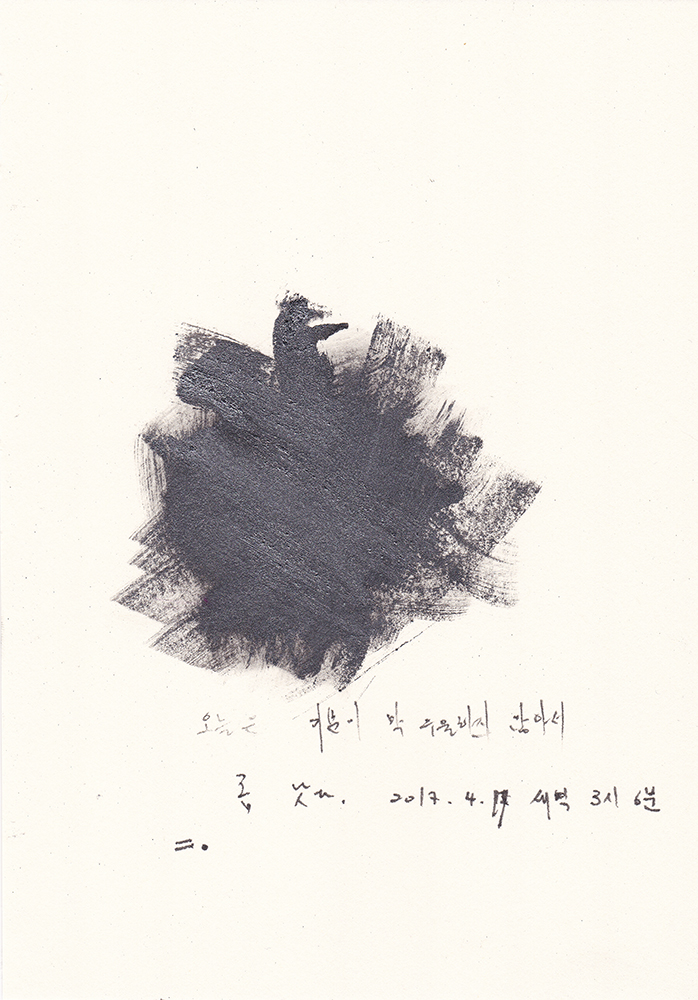 오늘은 기분이 막 우울하진 않아서
좀 낫다. 2017. 4. 17 새벽 3시 6분
=.